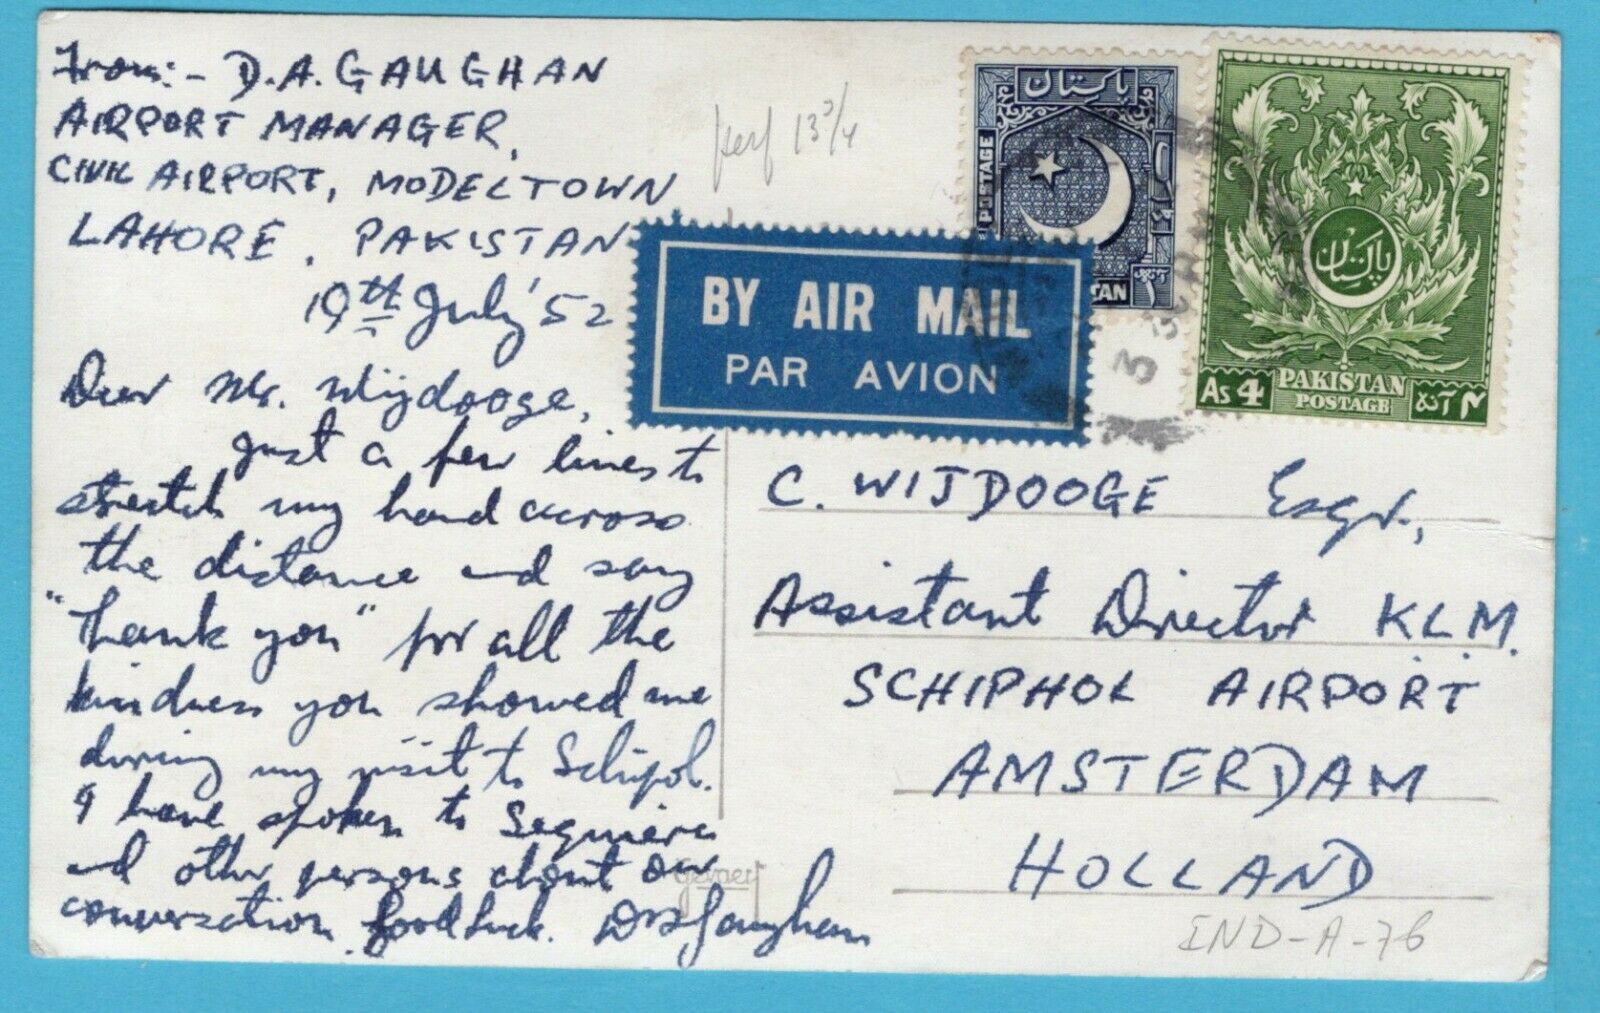 From:- D.A. GAUGHAN
AIRPORT MANAGER,
CIVIL AIRPORT, MODELTOWN
LAHORE, PAKISTAN
19th July '52
Dear Mr. Wijdooge,
Just a few lines to
stretch my hand across
the distance and say
"thank you" for all the
kindness you showed me
during my visit to Schipol.
I have spoken to Sequiera
and other persons about our
conversation. Good luck. DAGaughan
Gevaert
perf 13 3/4
پاکستان
POSTAGE
BY AIR MAIL
PAR AVION
پاکستان
As 4 PAKISTAN ۴ آنہ
POSTAGE
C. WIJDOOGE Esqr.,
Assistant Director K.L.M.
SCHIPHOL AIRPORT
AMSTERDAM
HOLLAND
IND-A-76